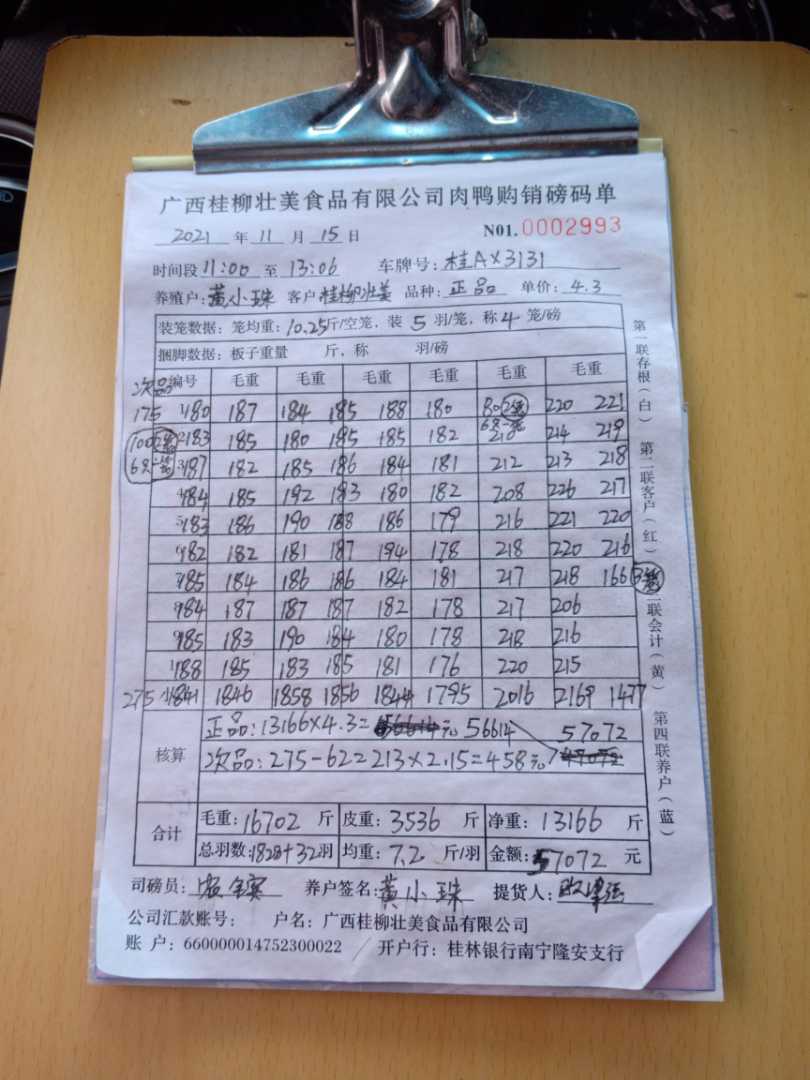 广西桂柳壮美食品有限公司肉鸭购销磅码单
2021 年 11 月 15 日 N01.0002993
时间段 11:00 至 13:06 车牌号: 桂AX3131
养殖户: 黄小珠 客户 桂柳壮美 品种: 正品 单价: 4.3
装笼数据: 笼均重: 10.25斤/空笼, 装 5 羽/笼, 称 4 笼/磅
捆脚数据: 板子重量 斤, 称 羽/磅
次品 编号 毛重 毛重 毛重 毛重 毛重 毛重
175 180 187 184 185 188 180 80 2笼 220 221
100 2笼 183 185 180 195 185 182 6只一笼 218 214 219
6只一笼 187 182 185 186 184 181 212 213 218
184 185 192 183 180 182 208 226 217
183 186 190 188 186 179 216 221 220
182 182 181 187 194 178 218 220 216
185 184 186 186 184 181 217 218 166 3笼
184 187 187 187 182 178 217 206
185 183 190 184 180 178 218 216
188 185 183 185 181 176 220 215
275 1841 1846 1858 1856 1844 1795 2016 2169 1477
核算
正品: 13166×4.3= 56614 57072
次品: 275-62=213×2.15=458元
合计
毛重: 16702 斤 皮重: 3536 斤 净重: 13166 斤
总羽数: 1828+32羽 均重: 7.2 斤/羽 金额: 57072 元
司磅员: 养户签名: 黄小珠 提货人:
公司汇款账号: 户名: 广西桂柳壮美食品有限公司
账 户: 660000014752300022 开户行: 桂林银行南宁隆安支行
第一联存根(白) 第二联客户(红) 联会计(黄) 第四联养户(蓝)